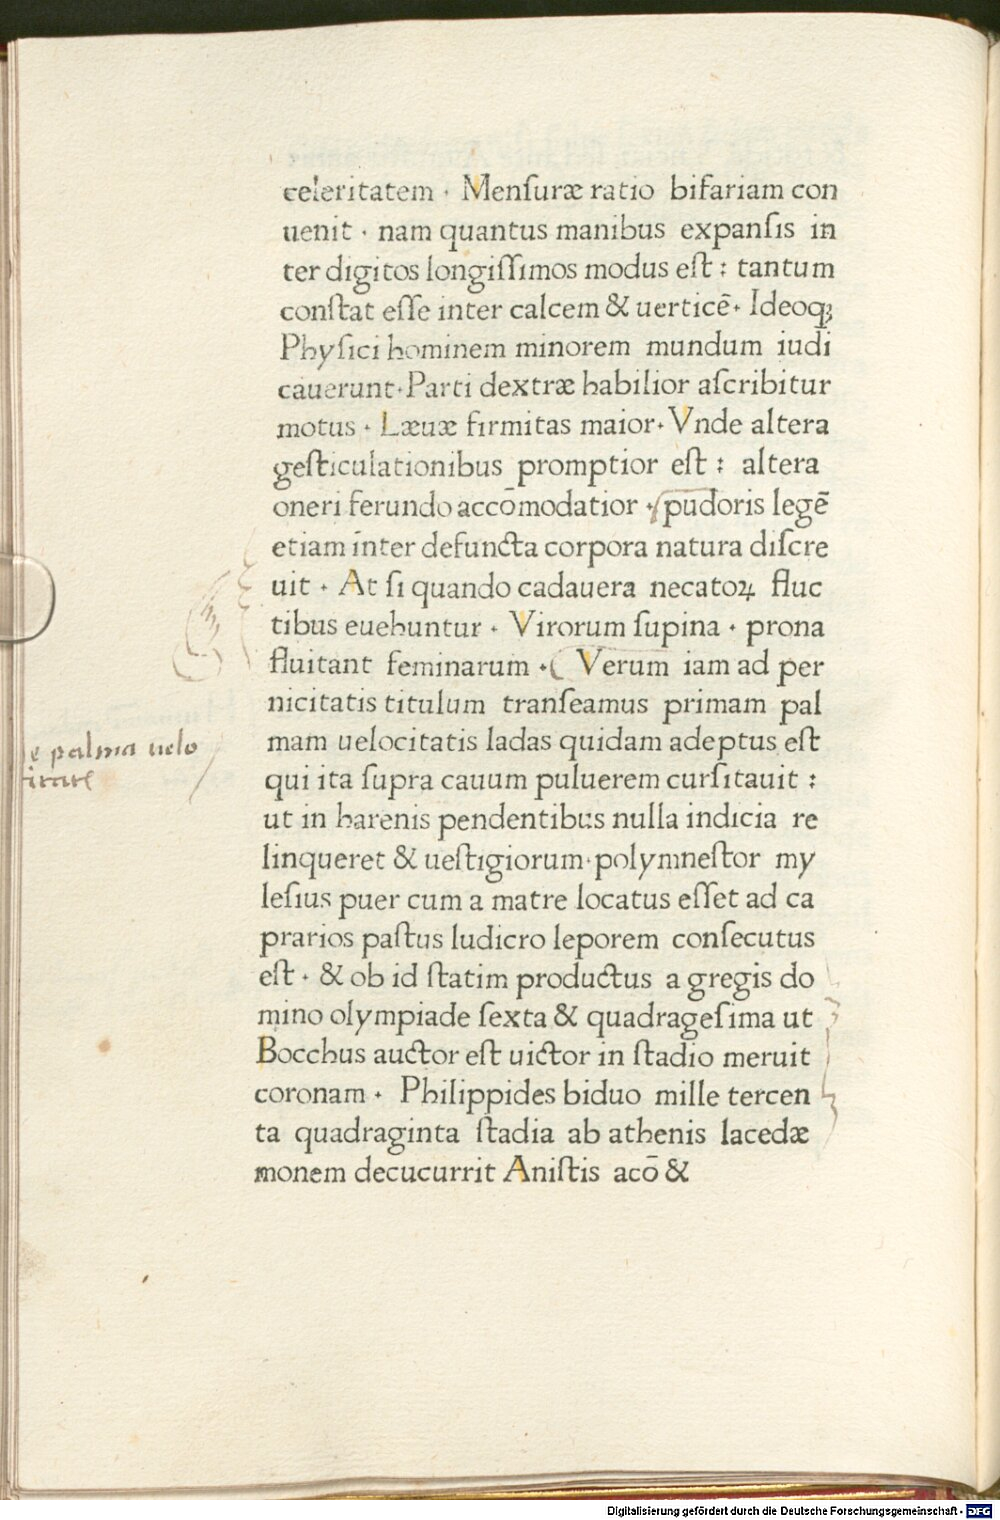 celeritatem · Menſuræ ratio bifariam con
uenit · nam quantus manibus expanſis in
ter digitos longiſſimos modus eſt : tantum
conſtat eſſe inter calcem & uerticē· Ideoqꝫ
Phyſici hominem minorem mundum iudi
cauerunt·Parti dextræ habilior aſcribitur
motus · Læuæ firmitas maior· Vnde altera
geſticulationibus promptior eſt : altera
oneri ferundo accōmodatior · pudoris legē
etiam inter defuncta corpora natura diſcre
uit · At ſi quando cadauera necatoꝝ fluc
tibus euehuntur · Virorum ſupina · prona
fluitant feminarum ·( Verum iam ad per
nicitatis titulum tranſeamus primam pal
mam uelocitatis ladas quidam adeptus eſt
qui ita ſupra cauum puluerem curſitauit :
ut in harenis pendentibus nulla indicia re
linqueret & ueſtigiorum·polymneſtor my
leſius puer cum a matre locatus eſſet ad ca
prarios paſtus ludicro leporem conſecutus
eſt · & ob id ſtatim productus a gregis do
mino olympiade ſexta & quadrageſima ut
Bocchus auctor eſt uictor in ſtadio meruit
coronam · Philippides biduo mille tercen
ta quadraginta ſtadia ab athenis lacedæ
monem decucurrit Aniſtis acō &
e palma uelo
Digitalisierung gefördert durch die Deutsche Forschungsgemeinschaft - DFG